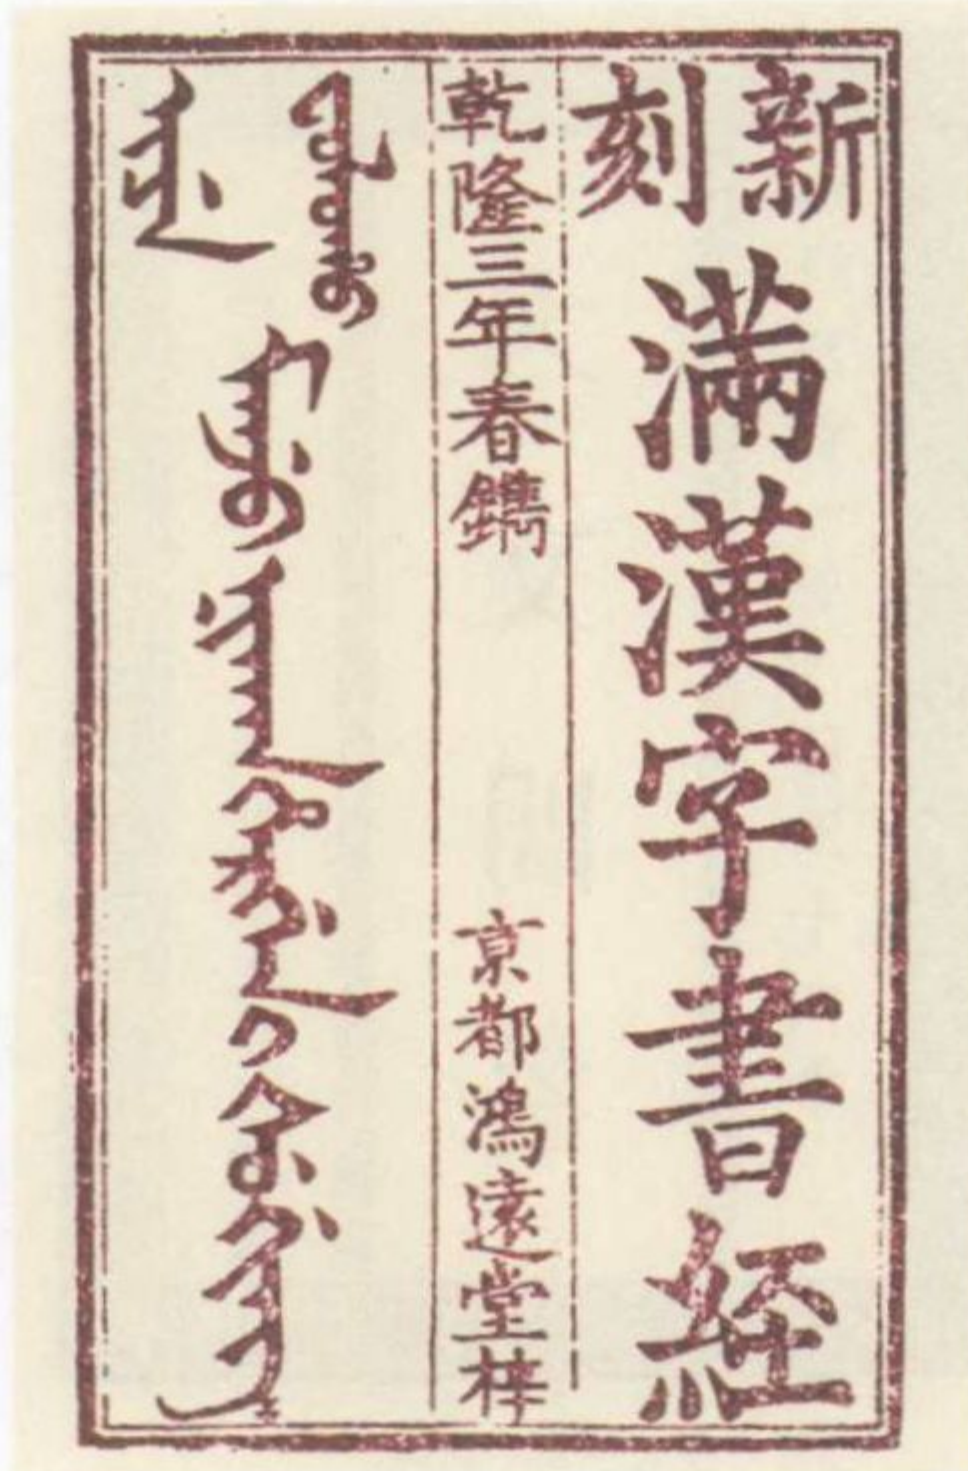 新刻
滿漢字書經
乾隆三年春鐫
京都鴻遠堂梓
ᡳᠴᡝ ᡶᠣᠯᠣᡥᠣ
ᠮᠠᠨᠵᡠ ᠨᡳ�kᠠᠨ ᡥᡝᡵᡤᡝᠨ ᡳ ᡧᡠ ᡤᡳᠩ